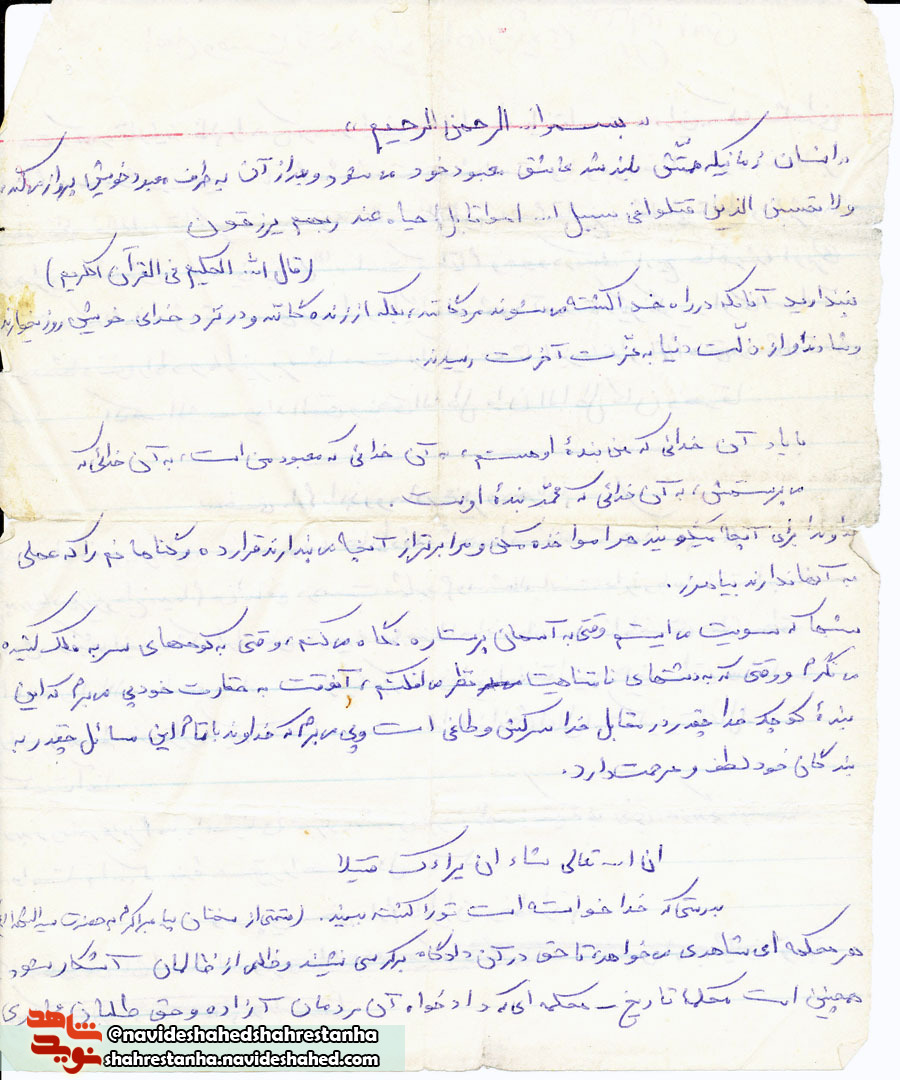 « بسم ا... الرحمن الرحیم »
« انسان زمانیکه همتّش بلند شد عاشق معبود خود می شود و بعد از آن به طرف معبود خویش پرواز می کند »
ولا تحسبن الذین قتلوا فی سبیل ا... امواتا بل احیاء عند ربهم یرزقون
(قال الله الحکیم فی القرآن الکریم)
نپندارید آنانکه در راه خدا کشته می شوند مردگانند، بلکه از زنده گانند و در نزد خدای خویش روزیخوارند
و شادند و از ذلّت دنیا به عزّت آخرت رسیدند.
با یاد آن خدائی که من بندهٔ او هستم، به آن خدائی که معبود من است، به آن خدائی که
می پرستمش، به آن خدائی که محمّد بندهٔ اوست.
خداوندا برای آنچه میگویند مرا مواخذه مکن و مرا برتر از آنچه می پندارند قرار ده و گناهانم را که علمی
به آنها ندارند بیامرز.
شبها که بسویت می ایستم وقتی به آسمان پرستاره نگاه می کنم، وقتی به کوههای سر به فلک کشیده
می نگرم و وقتی که به دشتهای نامتناهیت نظر می افکنم، آنوقت به حقارت خود پی می برم که این
بندهٔ کوچک خدا چقدر در مقابل خدا سرکش و طاغی است و پی می برم که خداوند با تمام این مسائل چقدر به
بندگان خود لطف و مرحمت دارد.
ان ا... تعالی شاء ان یراک قتیلا
بدرستی که خدا خواسته است تو را کشته ببیند. (قسمتی از سخنان پیامبر اکرم به حضرت سید الشهداء
هر محکمه ای شاهدی می خواهد، تا حق در آن دادگاه بر کرسی نشیند و ظلم از ظالمان آشکار شود
همچنین است محکمهٔ تاریخ _ محکمه ای که دادخواه آن مردمان آزاده و حق طلبان
شاهد
نوید
@navideshahedshahrestanha
shahrestanha.navideshahed.com